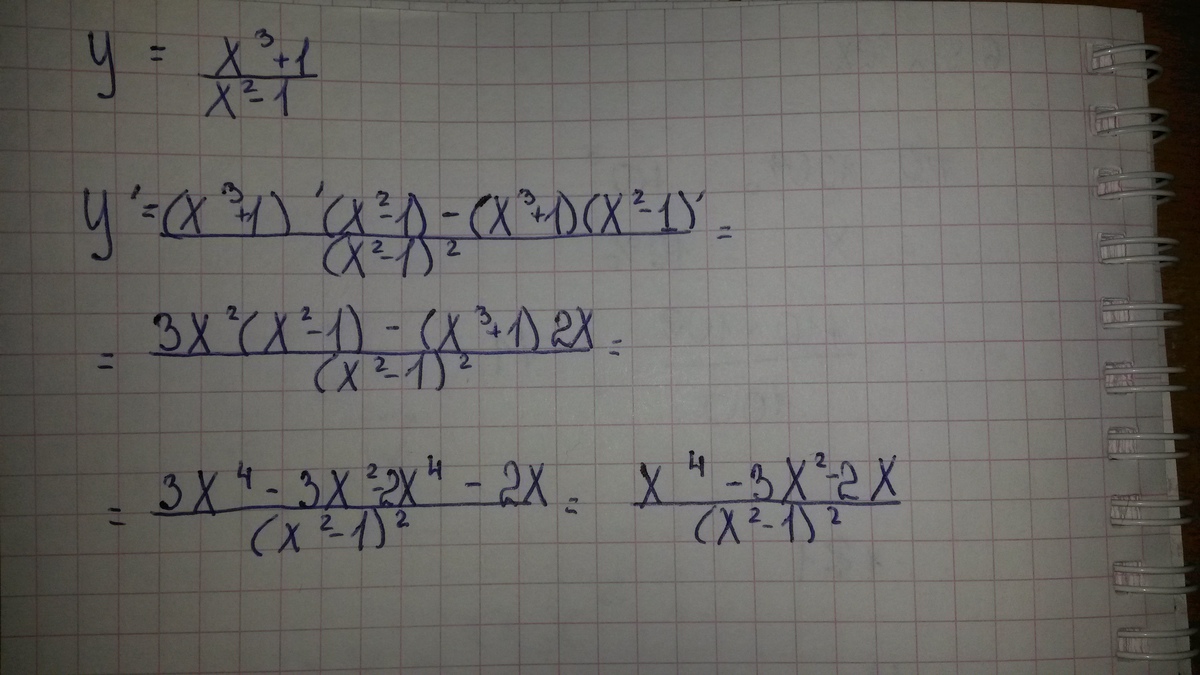 y = (x³+1)/(x²-1)
y' = ((x³+1)'(x²-1) - (x³+1)(x²-1)')/(x²-1)² =
= (3x²(x²-1) - (x³+1)2x)/(x²-1)² =
= (3x⁴ - 3x² - 2x⁴ - 2x)/(x²-1)² = (x⁴ - 3x² - 2x)/(x²-1)²